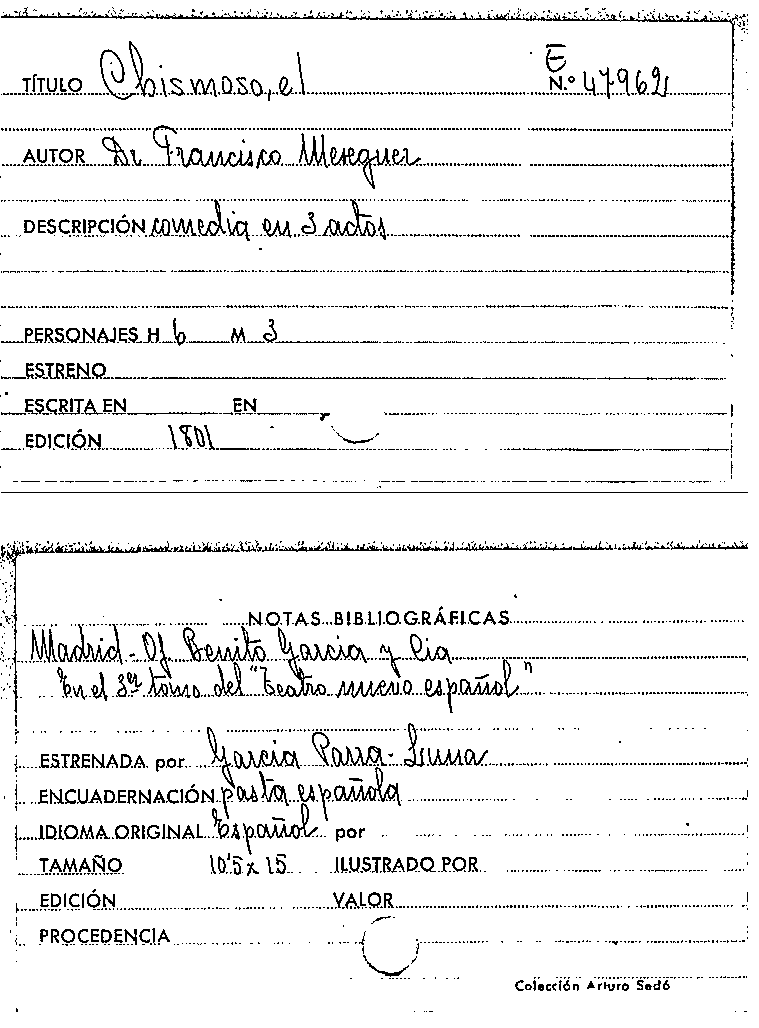 TÍTULO Chismoso, el E
N.º 47962
AUTOR Dr Francisco Mereguer
DESCRIPCIÓN comedia en 3 actos
PERSONAJES H 6 M 3
ESTRENO
ESCRITA EN EN
EDICIÓN 1801
NOTAS BIBLIOGRÁFICAS
Madrid - Of Benito Garcia y Cia
En el 3er tomo del "Teatro nuevo español"
ESTRENADA por Garcia Parra - Luna
ENCUADERNACIÓN pasta española
IDIOMA ORIGINAL Español por
TAMAÑO 10'5 x 15 ILUSTRADO POR
EDICIÓN VALOR
PROCEDENCIA
Colección Arturo Sedó